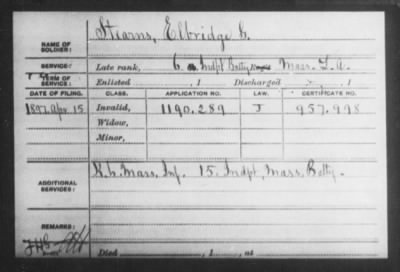 NAME OF SOLDIER: Stearns, Elbridge G.
SERVICE: Late rank, 6" Indpt Batty Mass. L. A.
TERM OF SERVICE: Enlisted , 1 Discharged , 1
DATE OF FILING. CLASS. APPLICATION NO. LAW. CERTIFICATE NO.
1897 Apr. 15 Invalid, 1190.289 J 957.998
Widow,
Minor,
ADDITIONAL SERVICES: K. 6. Mass. Inf. 15. Indpt. Mass. Batty.
REMARKS:
Died , 1 , at